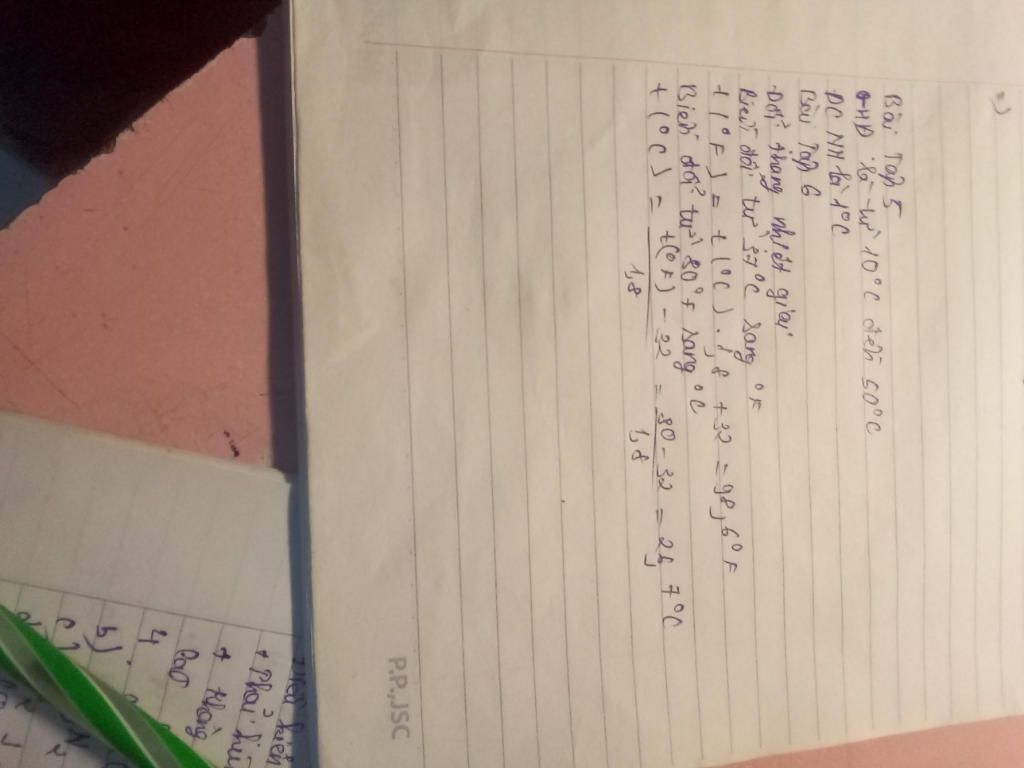 Bài Tập 5
GHĐ là từ 10°C đến 50°C
ĐCNN là 1°C
Bài Tập 6
Đổi thang nhiệt giai
Biến đổi từ 37°C sang °F
t(°F) = t(°C) . 1,8 + 32 = 98,6°F
Biến đổi từ 80°F sang °C
t(°C) = t(°F) - 32 / 1,8 = 80 - 32 / 1,8 = 26,7°C
P.P.,JSC
+ Phải
+ không
bào
4
b)
c)